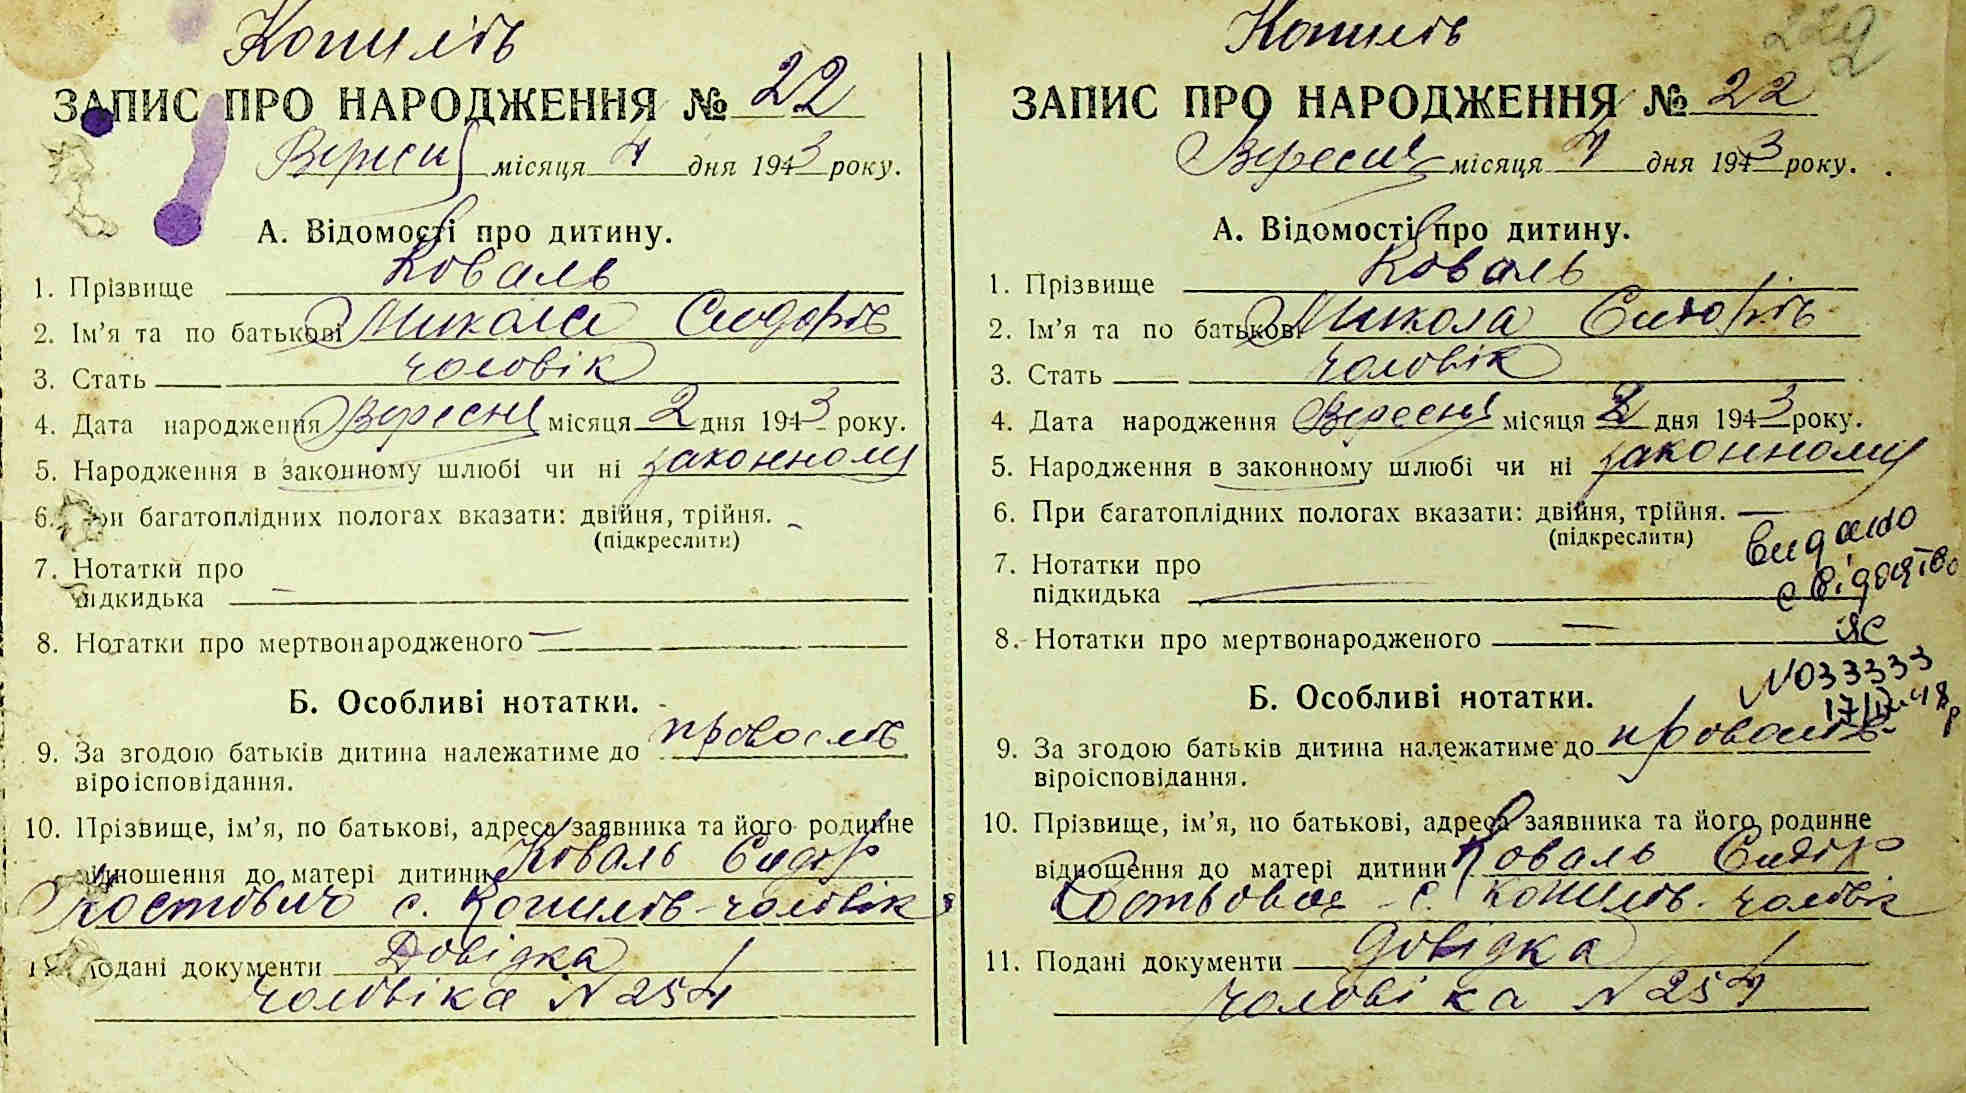 Копилів
ЗАПИС ПРО НАРОДЖЕННЯ № 22
Вересня місяця 4 дня 1943 року.
А. Відомості про дитину.
1. Прізвище Коваль
2. Ім'я та по батькові Микола Сидорів
3. Стать чоловік
4. Дата народження Вересня місяця 2 дня 1943 року.
5. Народження в законному шлюбі чи ні законному
6. При багатоплідних пологах вказати: двійня, трійня.
(підкреслити)
7. Нотатки про
підкидька
8. Нотатки про мертвонародженого
Б. Особливі нотатки.
9. За згодою батьків дитина належатиме до провослів
віроісповідання.
10. Прізвище, ім'я, по батькові, адреса заявника та його родинне
відношення до матері дитини Коваль Сидор
Костович с. Копилів - чоловік
11. Подані документи Довідка
чоловіка N 254
Копилів
229
ЗАПИС ПРО НАРОДЖЕННЯ № 22
Вересня місяця 4 дня 1943 року.
А. Відомості про дитину.
1. Прізвище Коваль
2. Ім'я та по батькові Микола Сидорів
3. Стать чоловік
4. Дата народження Вересня місяця 2 дня 1943 року.
5. Народження в законному шлюбі чи ні законному
6. При багатоплідних пологах вказати: двійня, трійня.
(підкреслити)
Видано
свідоцтво
7. Нотатки про
підкидька
8. Нотатки про мертвонародженого
ЯС
N033333
17/IV-48р
Б. Особливі нотатки.
9. За згодою батьків дитина належатиме до провослів
віроісповідання.
10. Прізвище, ім'я, по батькові, адреса заявника та його родинне
відношення до матері дитини Коваль Сидір
с. Копилів. чоловік
11. Подані документи Довідка
чоловіка N 254